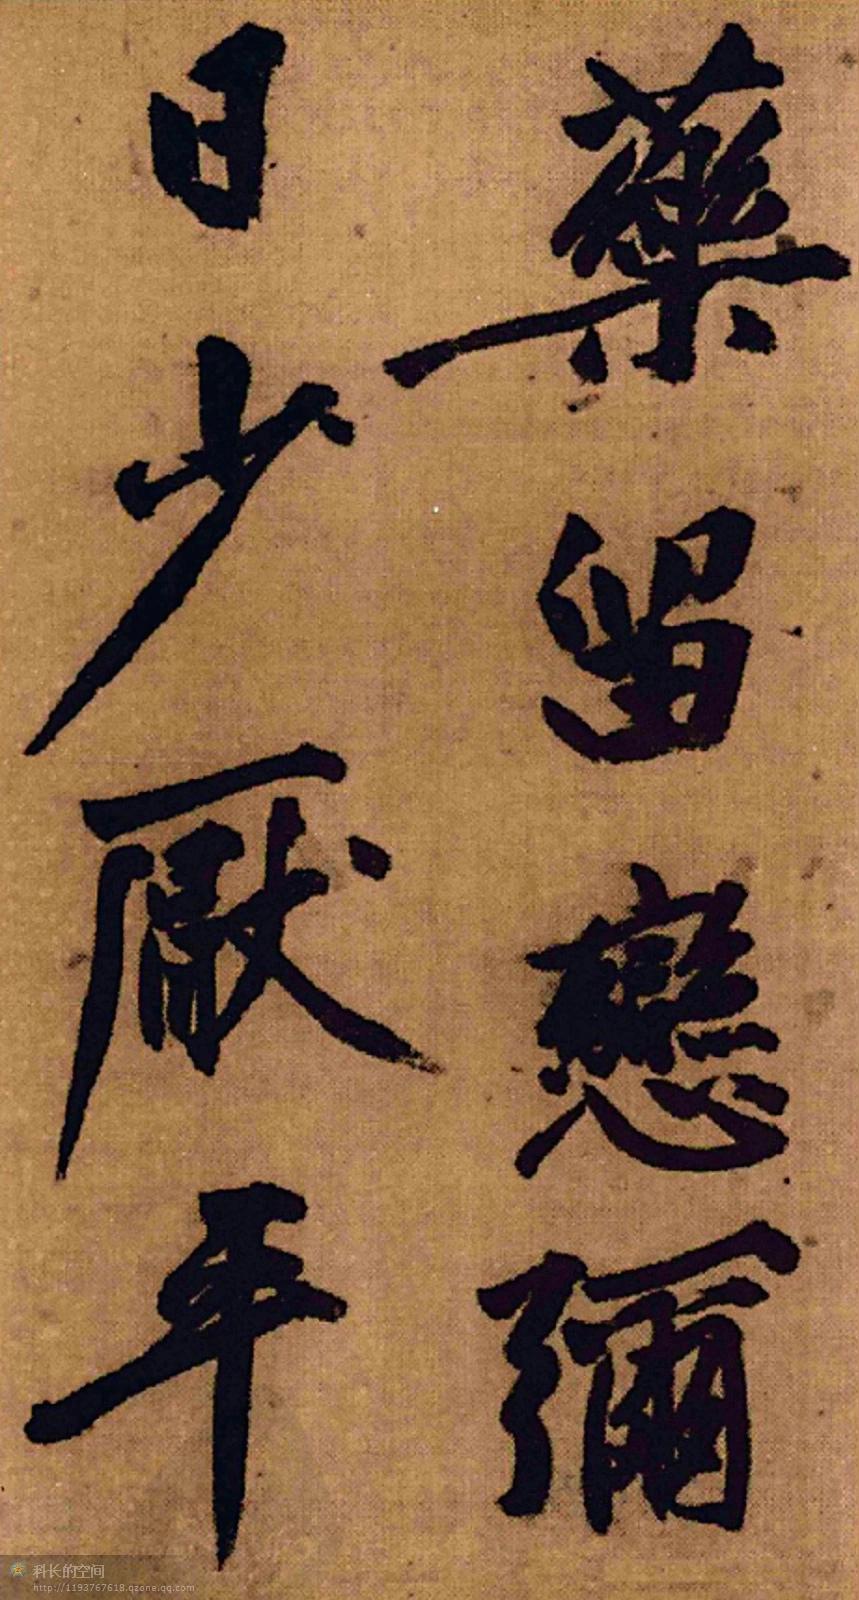 藥留戀彌
日少厭平
科长的空间
http://1193767618.qzone.qq.com